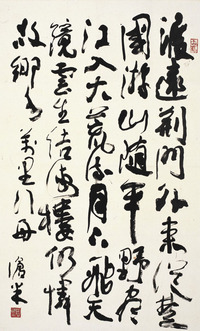 渡遠荊門外來從楚
國游山隨平野盡
江入大荒流月下飛天
鏡雲生結海樓仍憐
故鄉水萬里行舟